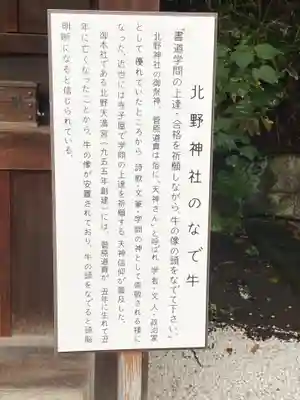 北野神社のなで牛
『書道学問の上達・合格を祈願しながら、牛の像の頭をなでて下さい。』
北野神社の御祭神、菅原道真は俗に、「天神さん」と呼ばれ、学者・文人・政治家
として優れていたところから、詩歌・文筆・学問の神として崇敬される様に
なった。近世には寺子屋で学問の上達を祈願する、天神信仰が普及した。
御本社である北野天満宮(九五五年創建)には、菅原道真が、丑年に生れて丑
年に亡くなったことから、牛の像が安置されており、牛の頭をなでると頭脳
明晰になると信じられている。